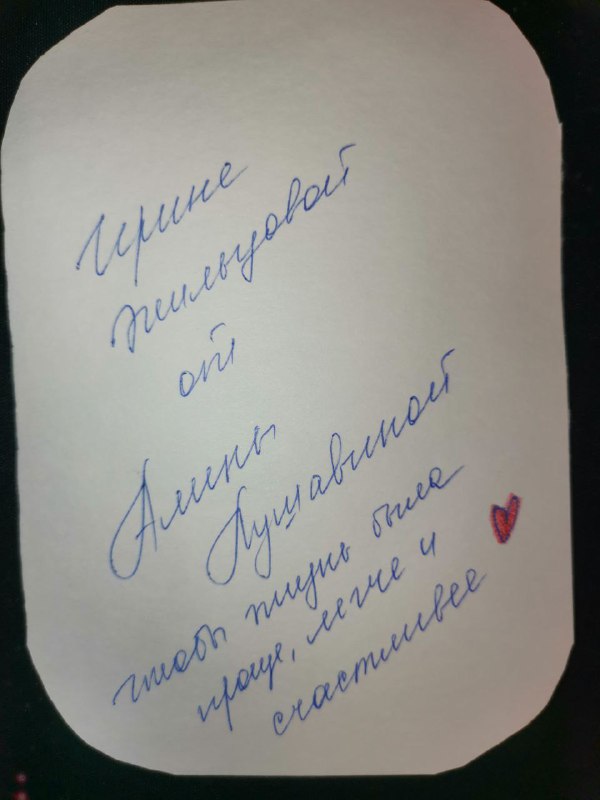 Ирине
Жильцовой
от
Алины
Лушавиной
чтобы жизнь была
проще, легче и
счастливее